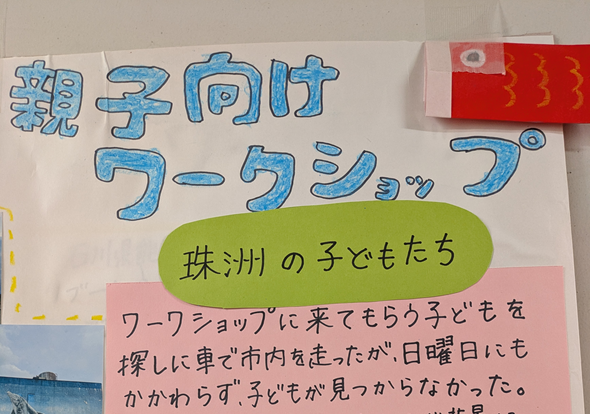 親子向け
ワークショップ
珠洲の子どもたち
ワークショップに来てもらう子どもを
探しに車で市内を走ったが、日曜日にも
かかわらず、子どもが見つからなかった。